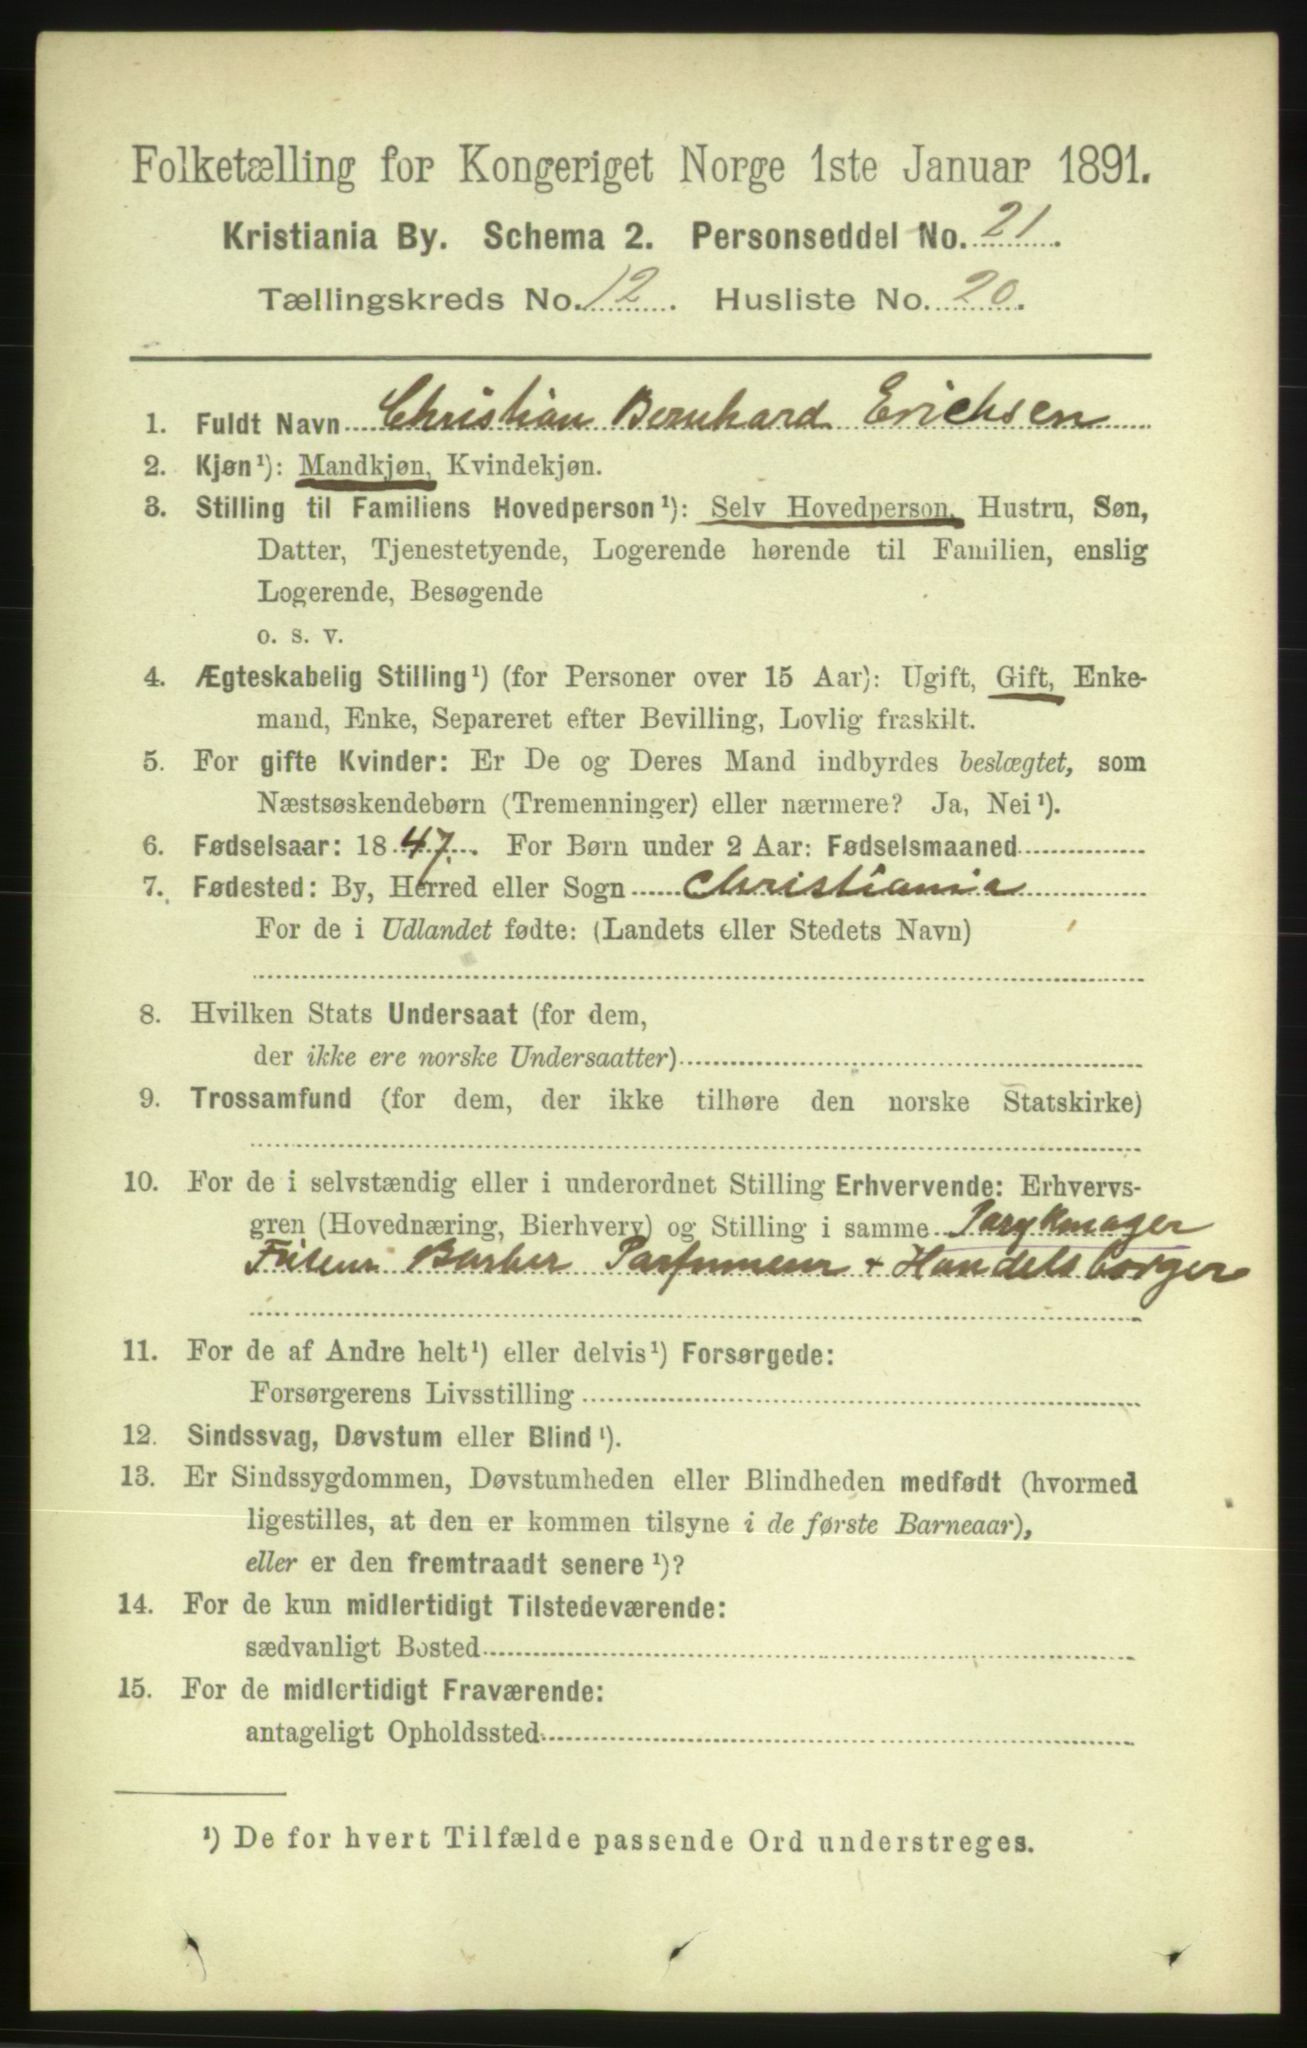 Folketælling for Kongeriget Norge 1ste Januar 1891.
Kristiania By. Schema 2. Personseddel No. 21.
Tællingskreds No. 12. Husliste No. 20.
1. Fuldt Navn Christian Bernhard Erichsen
2. Kjøn¹): Mandkjøn, Kvindekjøn.
3. Stilling til Familiens Hovedperson¹): Selv Hovedperson, Hustru, Søn,
Datter, Tjenestetyende, Logerende hørende til Familien, enslig
Logerende, Besøgende
o. s. v.
4. Ægteskabelig Stilling¹) (for Personer over 15 Aar): Ugift, Gift, Enke-
mand, Enke, Separeret efter Bevilling, Lovlig fraskilt.
5. For gifte Kvinder: Er De og Deres Mand indbyrdes beslægtet, som
Næstsøskendebørn (Tremenninger) eller nærmere? Ja, Nei¹).
6. Fødselsaar: 1847. For Børn under 2 Aar: Fødselsmaaned
7. Fødested: By, Herred eller Sogn Christiania
For de i Udlandet fødte: (Landets eller Stedets Navn)
8. Hvilken Stats Undersaat (for dem,
der ikke ere norske Undersaatter)
9. Trossamfund (for dem, der ikke tilhøre den norske Statskirke)
10. For de i selvstændig eller i underordnet Stilling Erhvervende: Erhvervs-
gren (Hovednæring, Bierhverv) og Stilling i samme Parykmager
Friseur Barber Parfumeur + Handelsborger
11. For de af Andre helt¹) eller delvis¹) Forsørgede:
Forsørgerens Livsstilling
12. Sindssvag, Døvstum eller Blind¹).
13. Er Sindssygdommen, Døvstumheden eller Blindheden medfødt (hvormed
ligestilles, at den er kommen tilsyne i de første Barneaar),
eller er den fremtraadt senere¹)?
14. For de kun midlertidigt Tilstedeværende:
sædvanligt Bosted
15. For de midlertidigt Fraværende:
antageligt Opholdssted
¹) De for hvert Tilfælde passende Ord understreges.